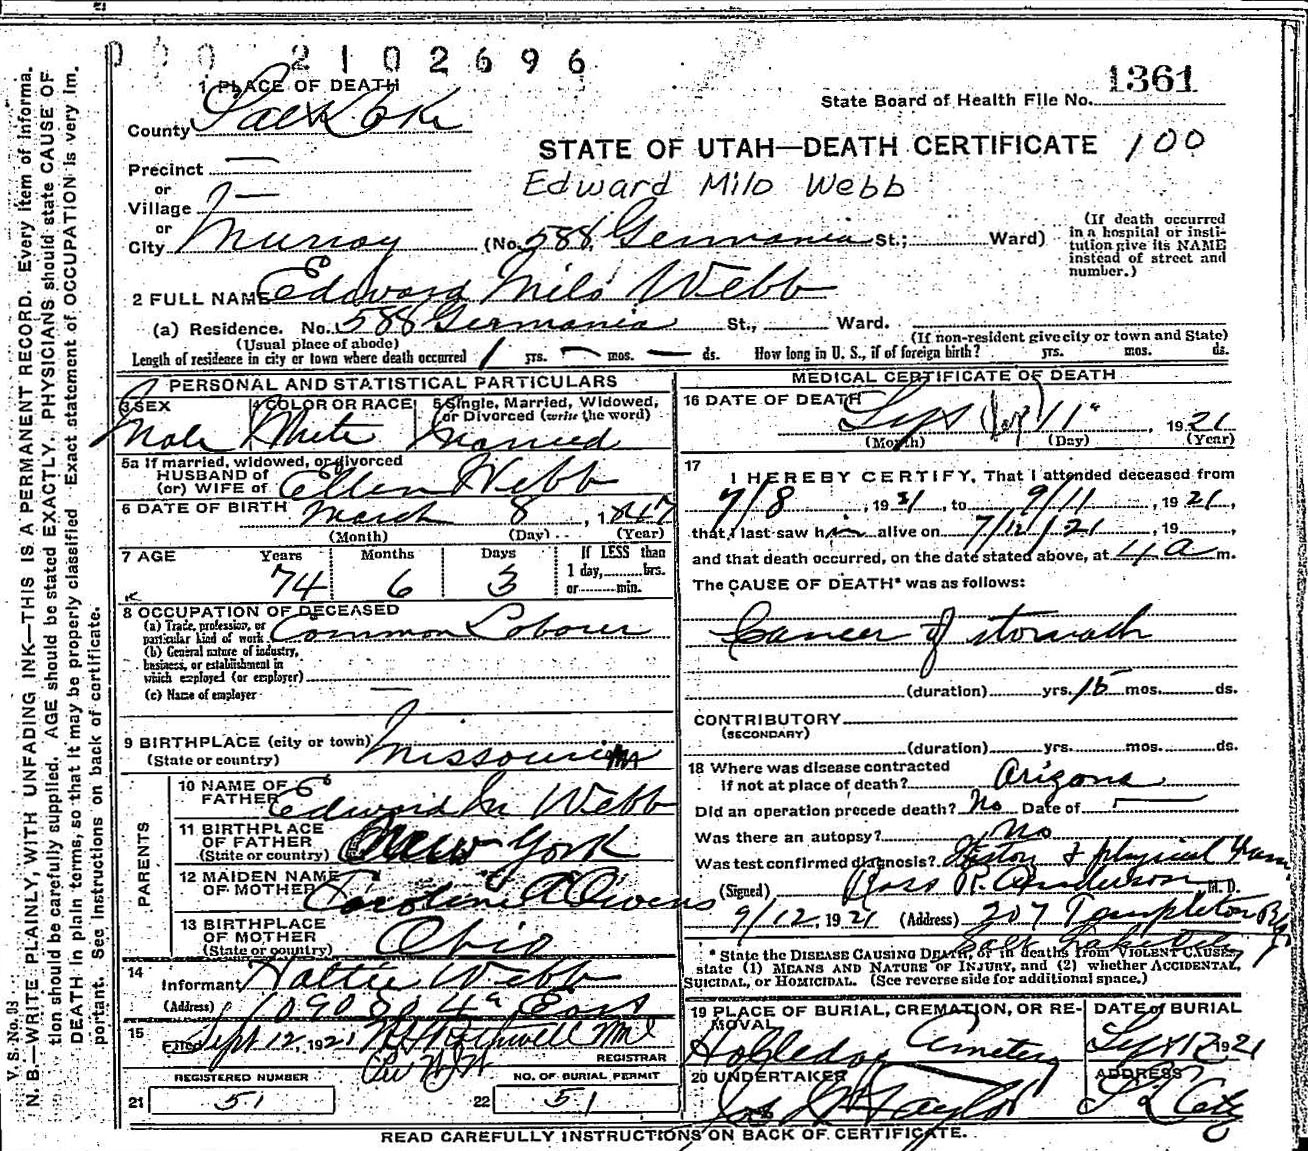 000 2102696
1 PLACE OF DEATH
1361
State Board of Health File No.
County Salt Lake
STATE OF UTAH—DEATH CERTIFICATE 100
Precinct —
Edward Milo Webb
or
Village —
or
City Murray (No. 588 Germania St.; Ward)
(If death occurred in a hospital or insti-
tution give its NAME
instead of street and
number.)
2 FULL NAME Edward Milo Webb
(a) Residence. No. 588 Germania St., Ward.
(Usual place of abode) (If non-resident give city or town and State)
Length of residence in city or town where death occurred 1 yrs. — mos. — ds. How long in U. S., if of foreign birth? yrs. mos. ds.
PERSONAL AND STATISTICAL PARTICULARS
3 SEX 4 COLOR OR RACE 5 Single, Married, Widowed,
or Divorced (write the word)
Male White Married
5a If married, widowed, or divorced
HUSBAND OF
(or) WIFE of Ellen Webb
6 DATE OF BIRTH March 8, 1847
(Month) (Day) (Year)
7 AGE Years Months Days If LESS than
74 6 3 1 day, hrs.
or min.
8 OCCUPATION OF DECEASED
(a) Trade, profession, or
particular kind of work Common Laborer
(b) General nature of industry,
business, or establishment in
which employed (or employer)
(c) Name of employer —
9 BIRTHPLACE (city or town)
(State or country) Missouri
PARENTS
10 NAME OF
FATHER Edward M Webb
11 BIRTHPLACE
OF FATHER
(State or country) New York
12 MAIDEN NAME
OF MOTHER Caroline A Owens
13 BIRTHPLACE
OF MOTHER
(State or country) Ohio
14
Informant Hattie Webb
(Address) 1090 So 4th East
15
Filed Sept 12, 1921
REGISTRAR
REGISTERED NUMBER NO. OF BURIAL PERMIT
21 51 22 51
MEDICAL CERTIFICATE OF DEATH
16 DATE OF DEATH
Sept 11, 1921
(Month) (Day) (Year)
17
I HEREBY CERTIFY, That I attended deceased from
7/8, 1921, to 9/11, 1921,
that I last saw him alive on 7/12/21, 19
and that death occurred, on the date stated above, at 4 a m.
The CAUSE OF DEATH* was as follows:
Cancer of stomach
(duration) yrs. 15 mos. ds.
CONTRIBUTORY
(SECONDARY)
(duration) yrs. mos. ds.
18 Where was disease contracted
if not at place of death? Arizona
Did an operation precede death? No Date of —
Was there an autopsy? No
Was test confirmed diagnosis? History & physical Exam
(Signed) Ross R. Anderson M. D.
9/12, 1921 (Address) 207 Templeton Bldg
Salt Lake City
* State the DISEASE CAUSING DEATH, or in deaths from VIOLENT CAUSES,
state (1) MEANS AND NATURE OF INJURY, and (2) whether ACCIDENTAL,
SUICIDAL, or HOMICIDAL. (See reverse side for additional space.)
19 PLACE OF BURIAL, CREMATION, OR RE-
MOVAL
DATE of BURIAL
Cemetery Sept 12 1921
20 UNDERTAKER ADDRESS
Taylor S L City
READ CAREFULLY INSTRUCTIONS ON BACK OF CERTIFICATE.
V. S. No. 93
N. B.—WRITE PLAINLY, WITH UNFADING INK—THIS IS A PERMANENT RECORD. Every item of informa-
tion should be carefully supplied. AGE should be stated EXACTLY. PHYSICIANS should state CAUSE OF
DEATH in plain terms, so that it may be properly classified. Exact statement of OCCUPATION is very im-
portant. See instructions on back of certificate.